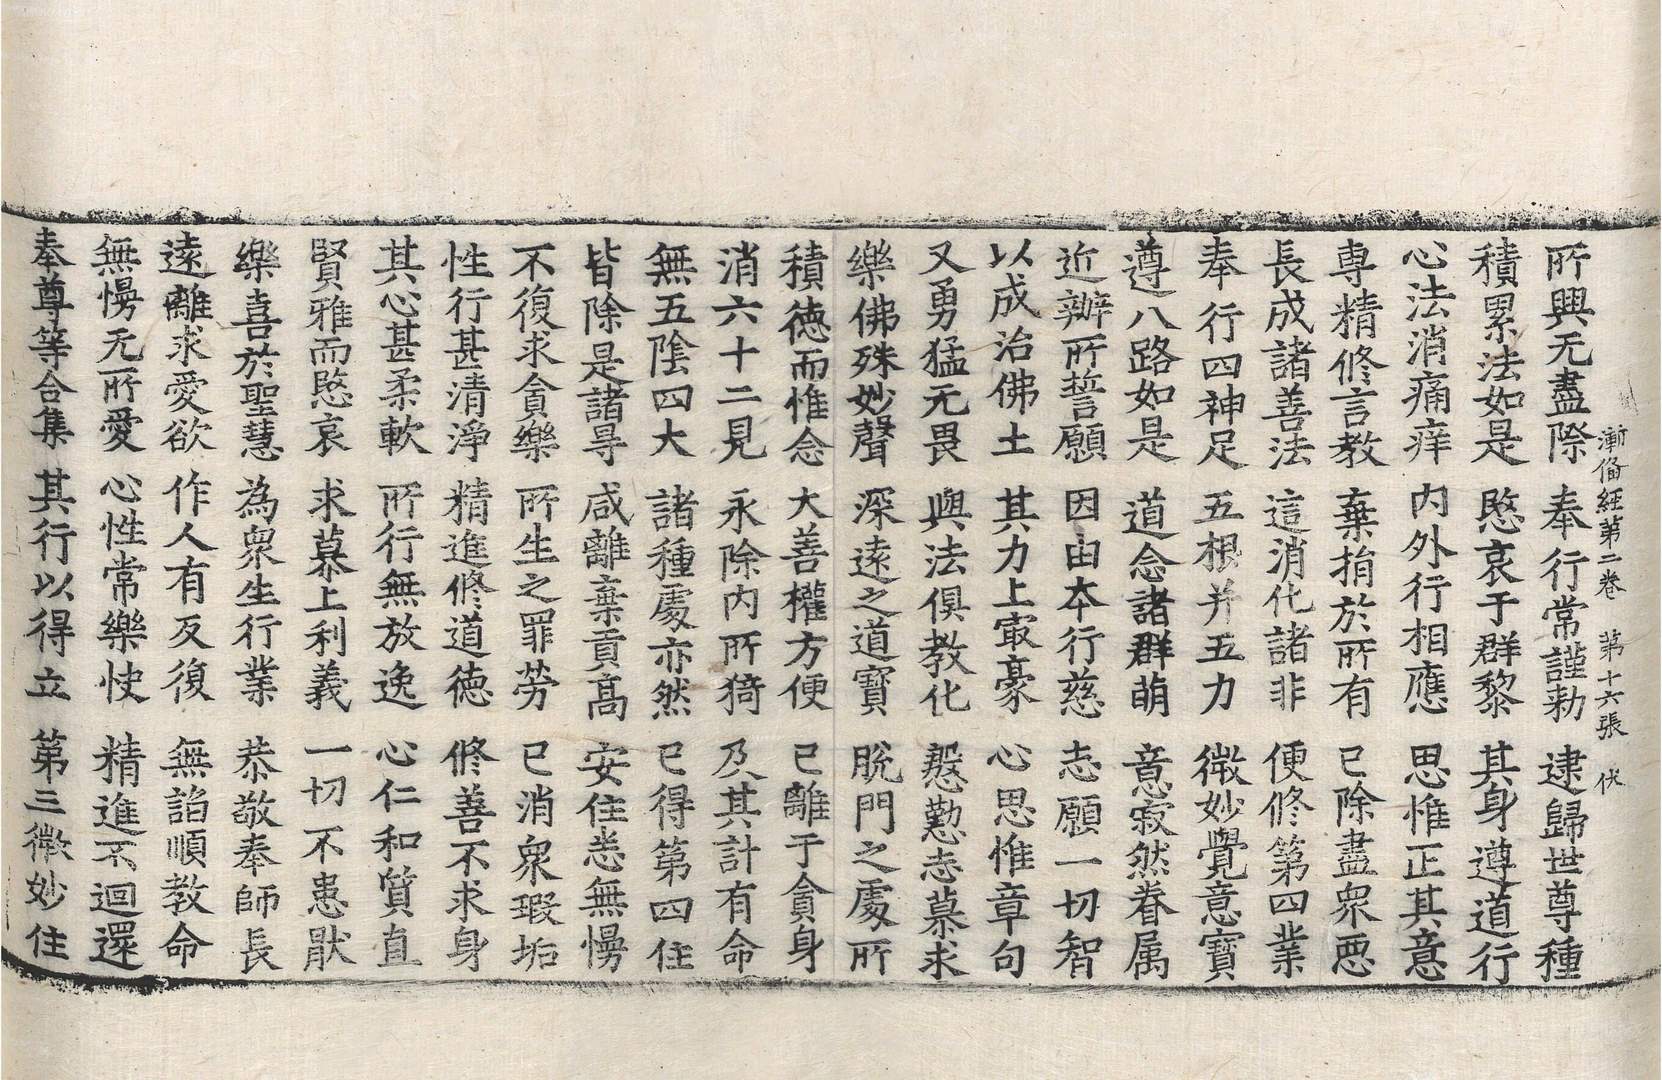 漸備經第二卷 第十六張 伏
所興无盡際 奉行常謹勑 逮歸世尊種
積累法如是 愍哀于群黎 其身遵道行
心法消痛痒 內外行相應 思惟正其意
専精修言教 棄捐於所有 已除盡眾惡
長成諸善法 這消化諸非 便修第四業
奉行四神足 五根并五力 微妙覺意寶
遵八路如是 道念諸群萌 意寂然眷属
近辦所誓願 因由本行慈 志願一切智
以成治佛土 其力上寂豪 心思惟章句
又勇猛无畏 與法俱教化 慇懃志慕求
樂佛殊妙聲 深遠之道寶 脫門之處所
積德而惟念 大善權方便 已離于貪身
消六十二見 永除內所猗 及其計有命
無五陰四大 諸種處亦然 已得第四住
皆除是諸㝵 咸離棄貢高 安住悉無慢
不復求貪樂 所生之罪勞 已消眾瑕垢
性行甚清淨 精進修道德 修善不求身
其心甚柔軟 所行無放逸 心仁和質直
賢雅而愍哀 求慕上利義 一切不患猒
樂喜於聖慧 為眾生行業 恭敬奉師長
遠離求愛欲 作人有反復 無諂順教命
無慢无所愛 心性常樂快 精進不迴還
奉尊等合集 其行以得立 第三微妙住